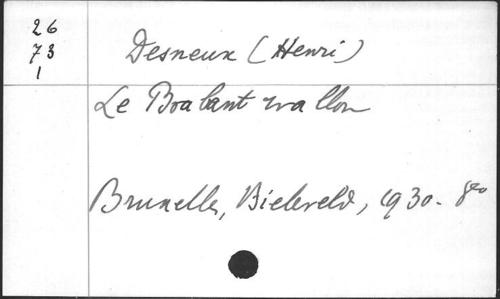 26
73
1
Desneux (Henri)
Le Brabant wallon
Bruxelles, Bieleveld, 1930. 8vo